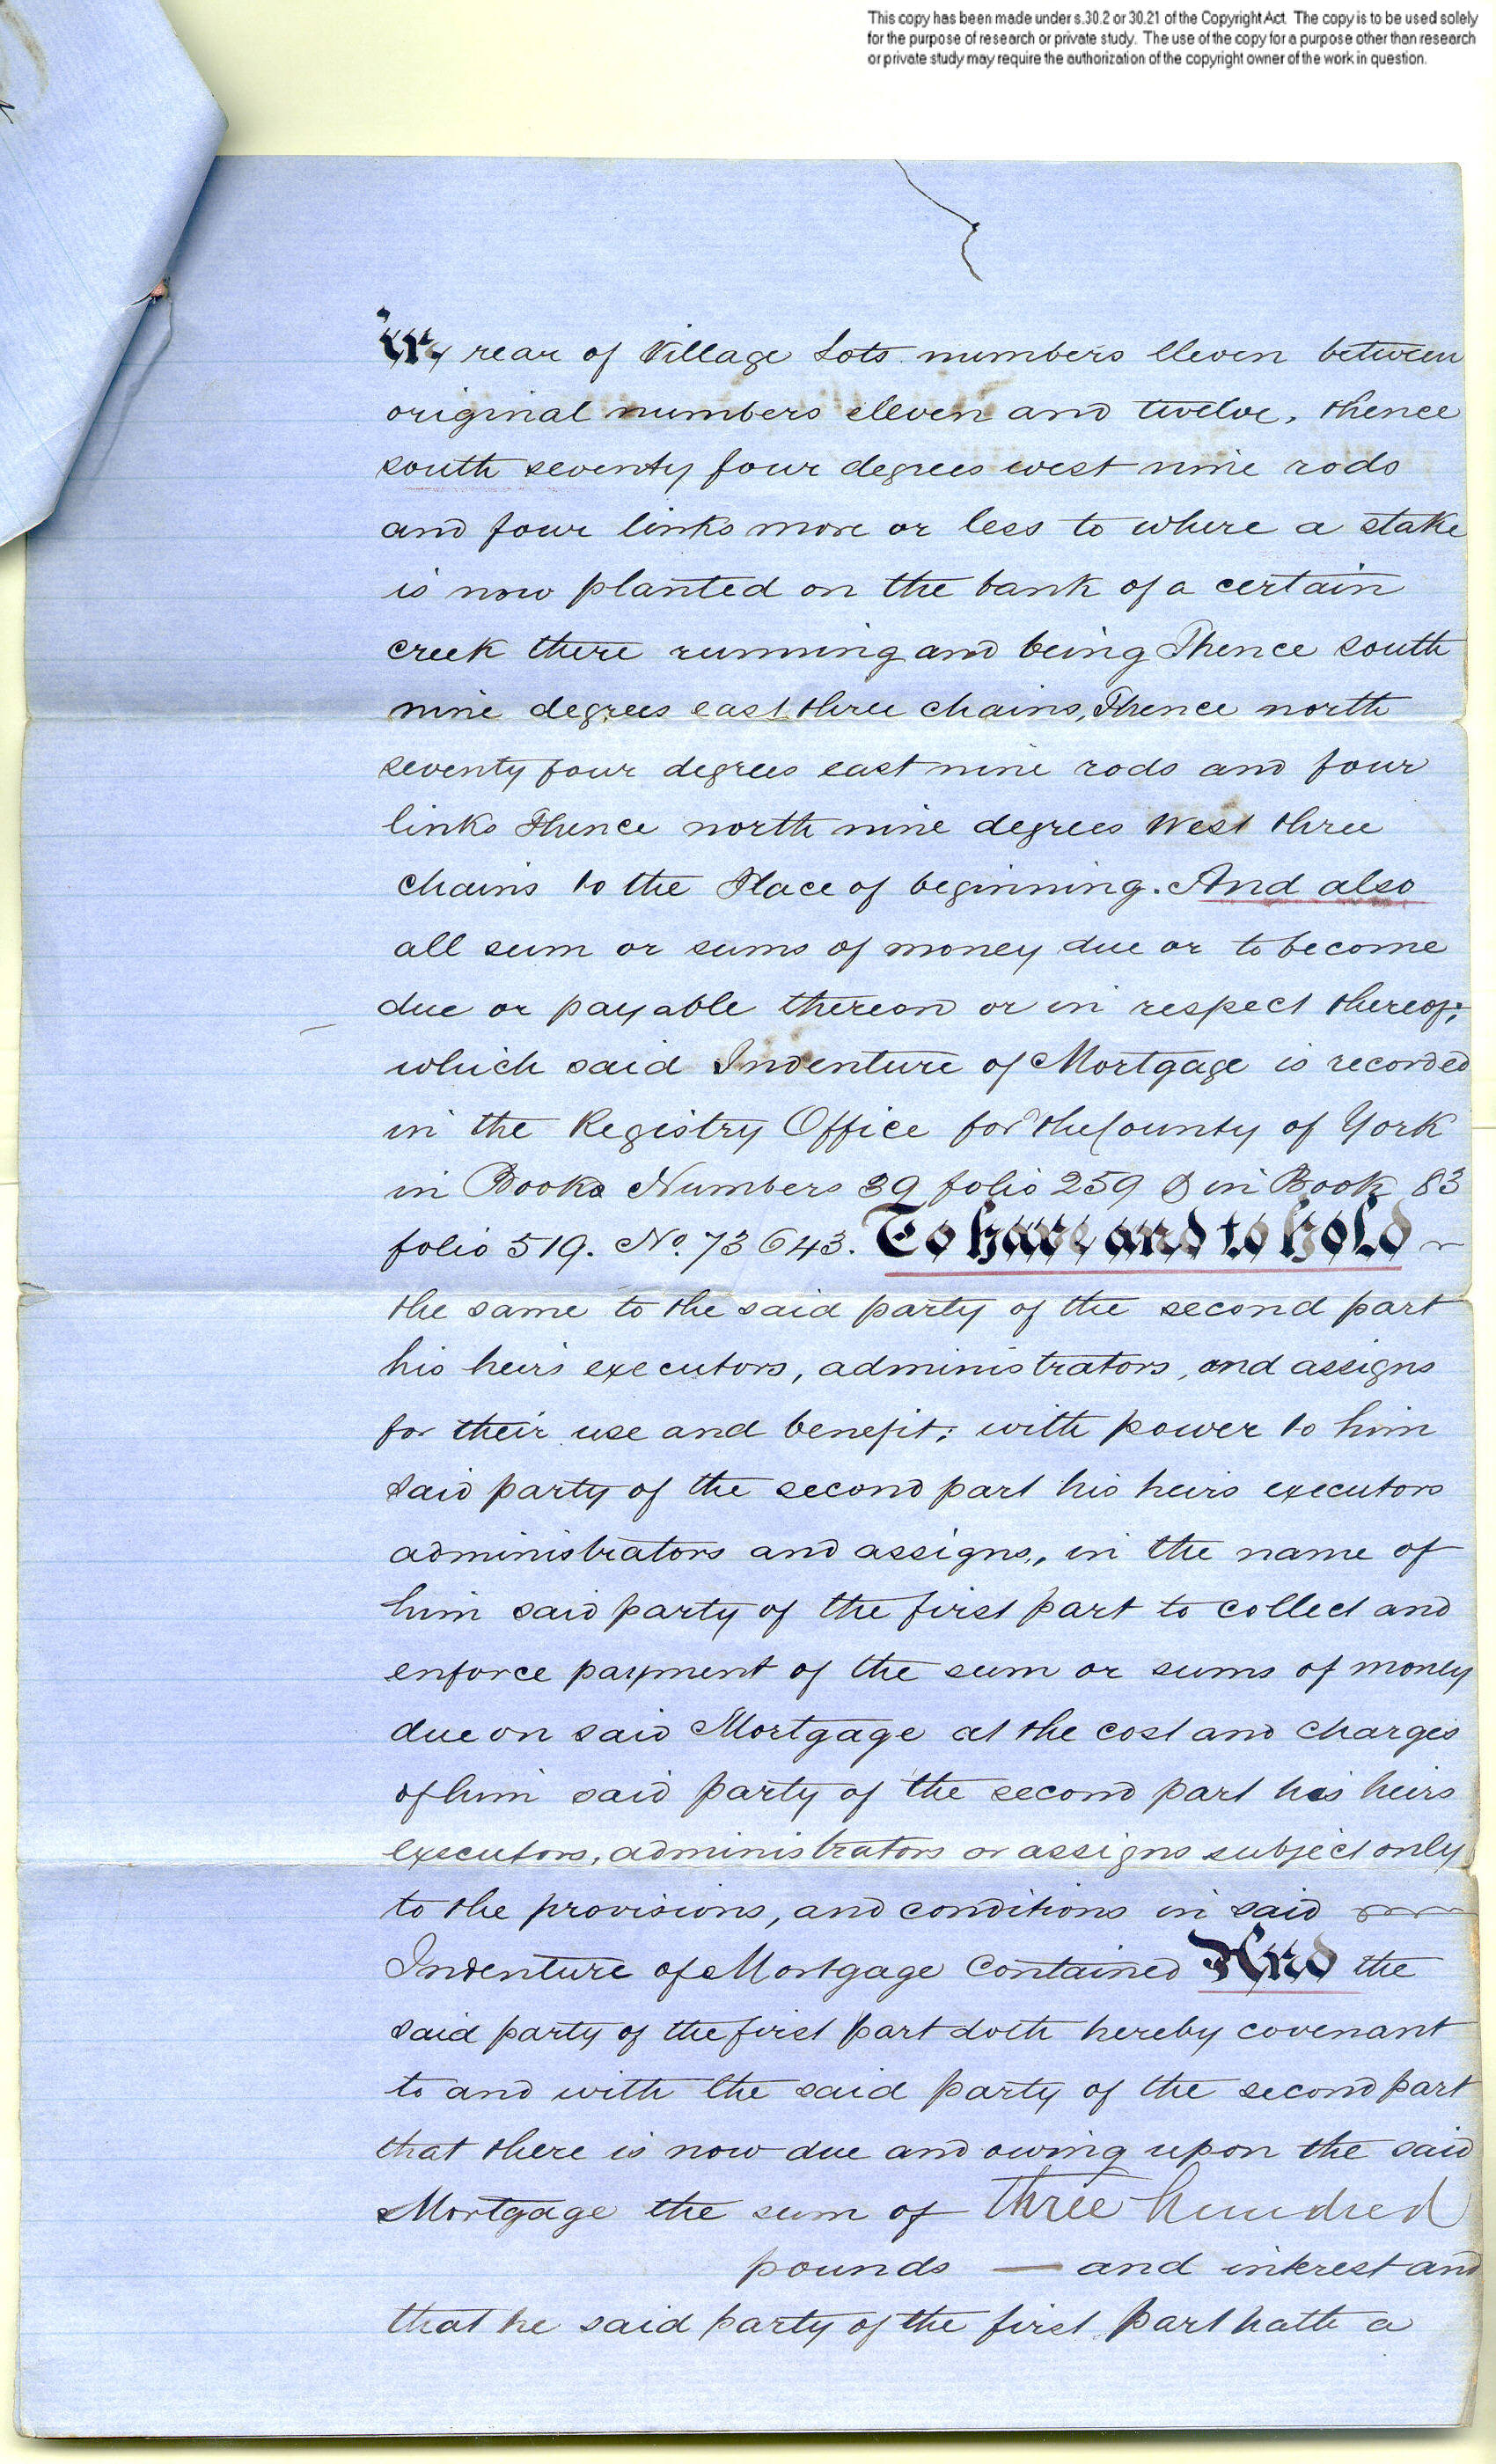 This copy has been made under s.30.2 or 30.21 of the Copyright Act. The copy is to be used solely
for the purpose of research or private study. The use of the copy for a purpose other than research
or private study may require the authorization of the copyright owner of the work in question.
in rear of Village Lots numbers eleven between
original numbers eleven and twelve, thence
south seventy four degrees west nine rods
and four links more or less to where a stake
is now planted on the bank of a certain
creek there running and being Thence south
nine degrees east three chains, Thence north
seventy four degrees east nine rods and four
links Thence north nine degrees West three
chains to the Place of beginning. And also
all sum or sums of money due or to become
due or payable thereon or in respect thereof;
which said Indenture of Mortgage is recorded
in the Registry Office for the County of York
in Books Numbers 39 folio 259 & in Book 83
folio 519. No. 73643. To have and to hold
the same to the said party of the second part
his heirs executors, administrators, and assigns
for their use and benefit; with power to him
said party of the second part his heirs executors
administrators and assigns, in the name of
him said party of the first part to collect and
enforce payment of the sum or sums of money
due on said Mortgage at the cost and charges
of him said party of the second part his heirs
executors, administrators or assigns subject only
to the provisions, and conditions in said
Indenture of Mortgage Contained And the
said party of the first part doth hereby covenant
to and with the said party of the second part
that there is now due and owing upon the said
Mortgage the sum of three hundred
pounds — and interest and
that he said party of the first part hath a